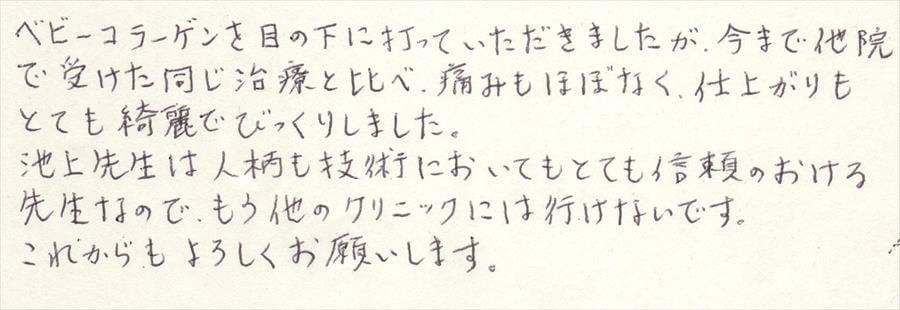 ベビーコラーゲンを目の下に打っていただきましたが、今まで他院
で受けた同じ治療と比べ、痛みもほぼなく、仕上がりも
とても綺麗でびっくりしました。
池上先生は人柄も技術においてもとても信頼のおける
先生なので、もう他のクリニックには行けないです。
これからもよろしくお願いします。